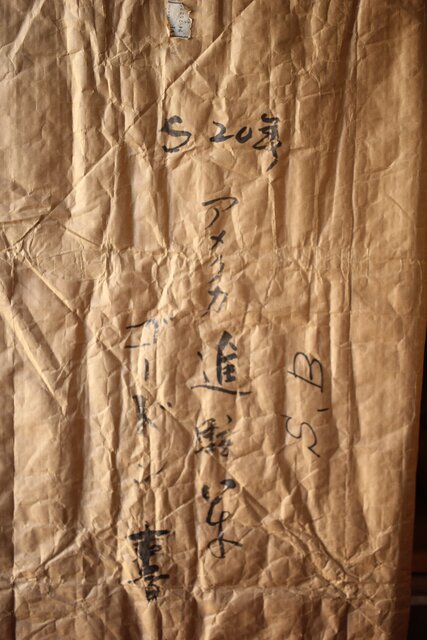 S 20年
S.B
アメリカ進駐軍
ゴードン書